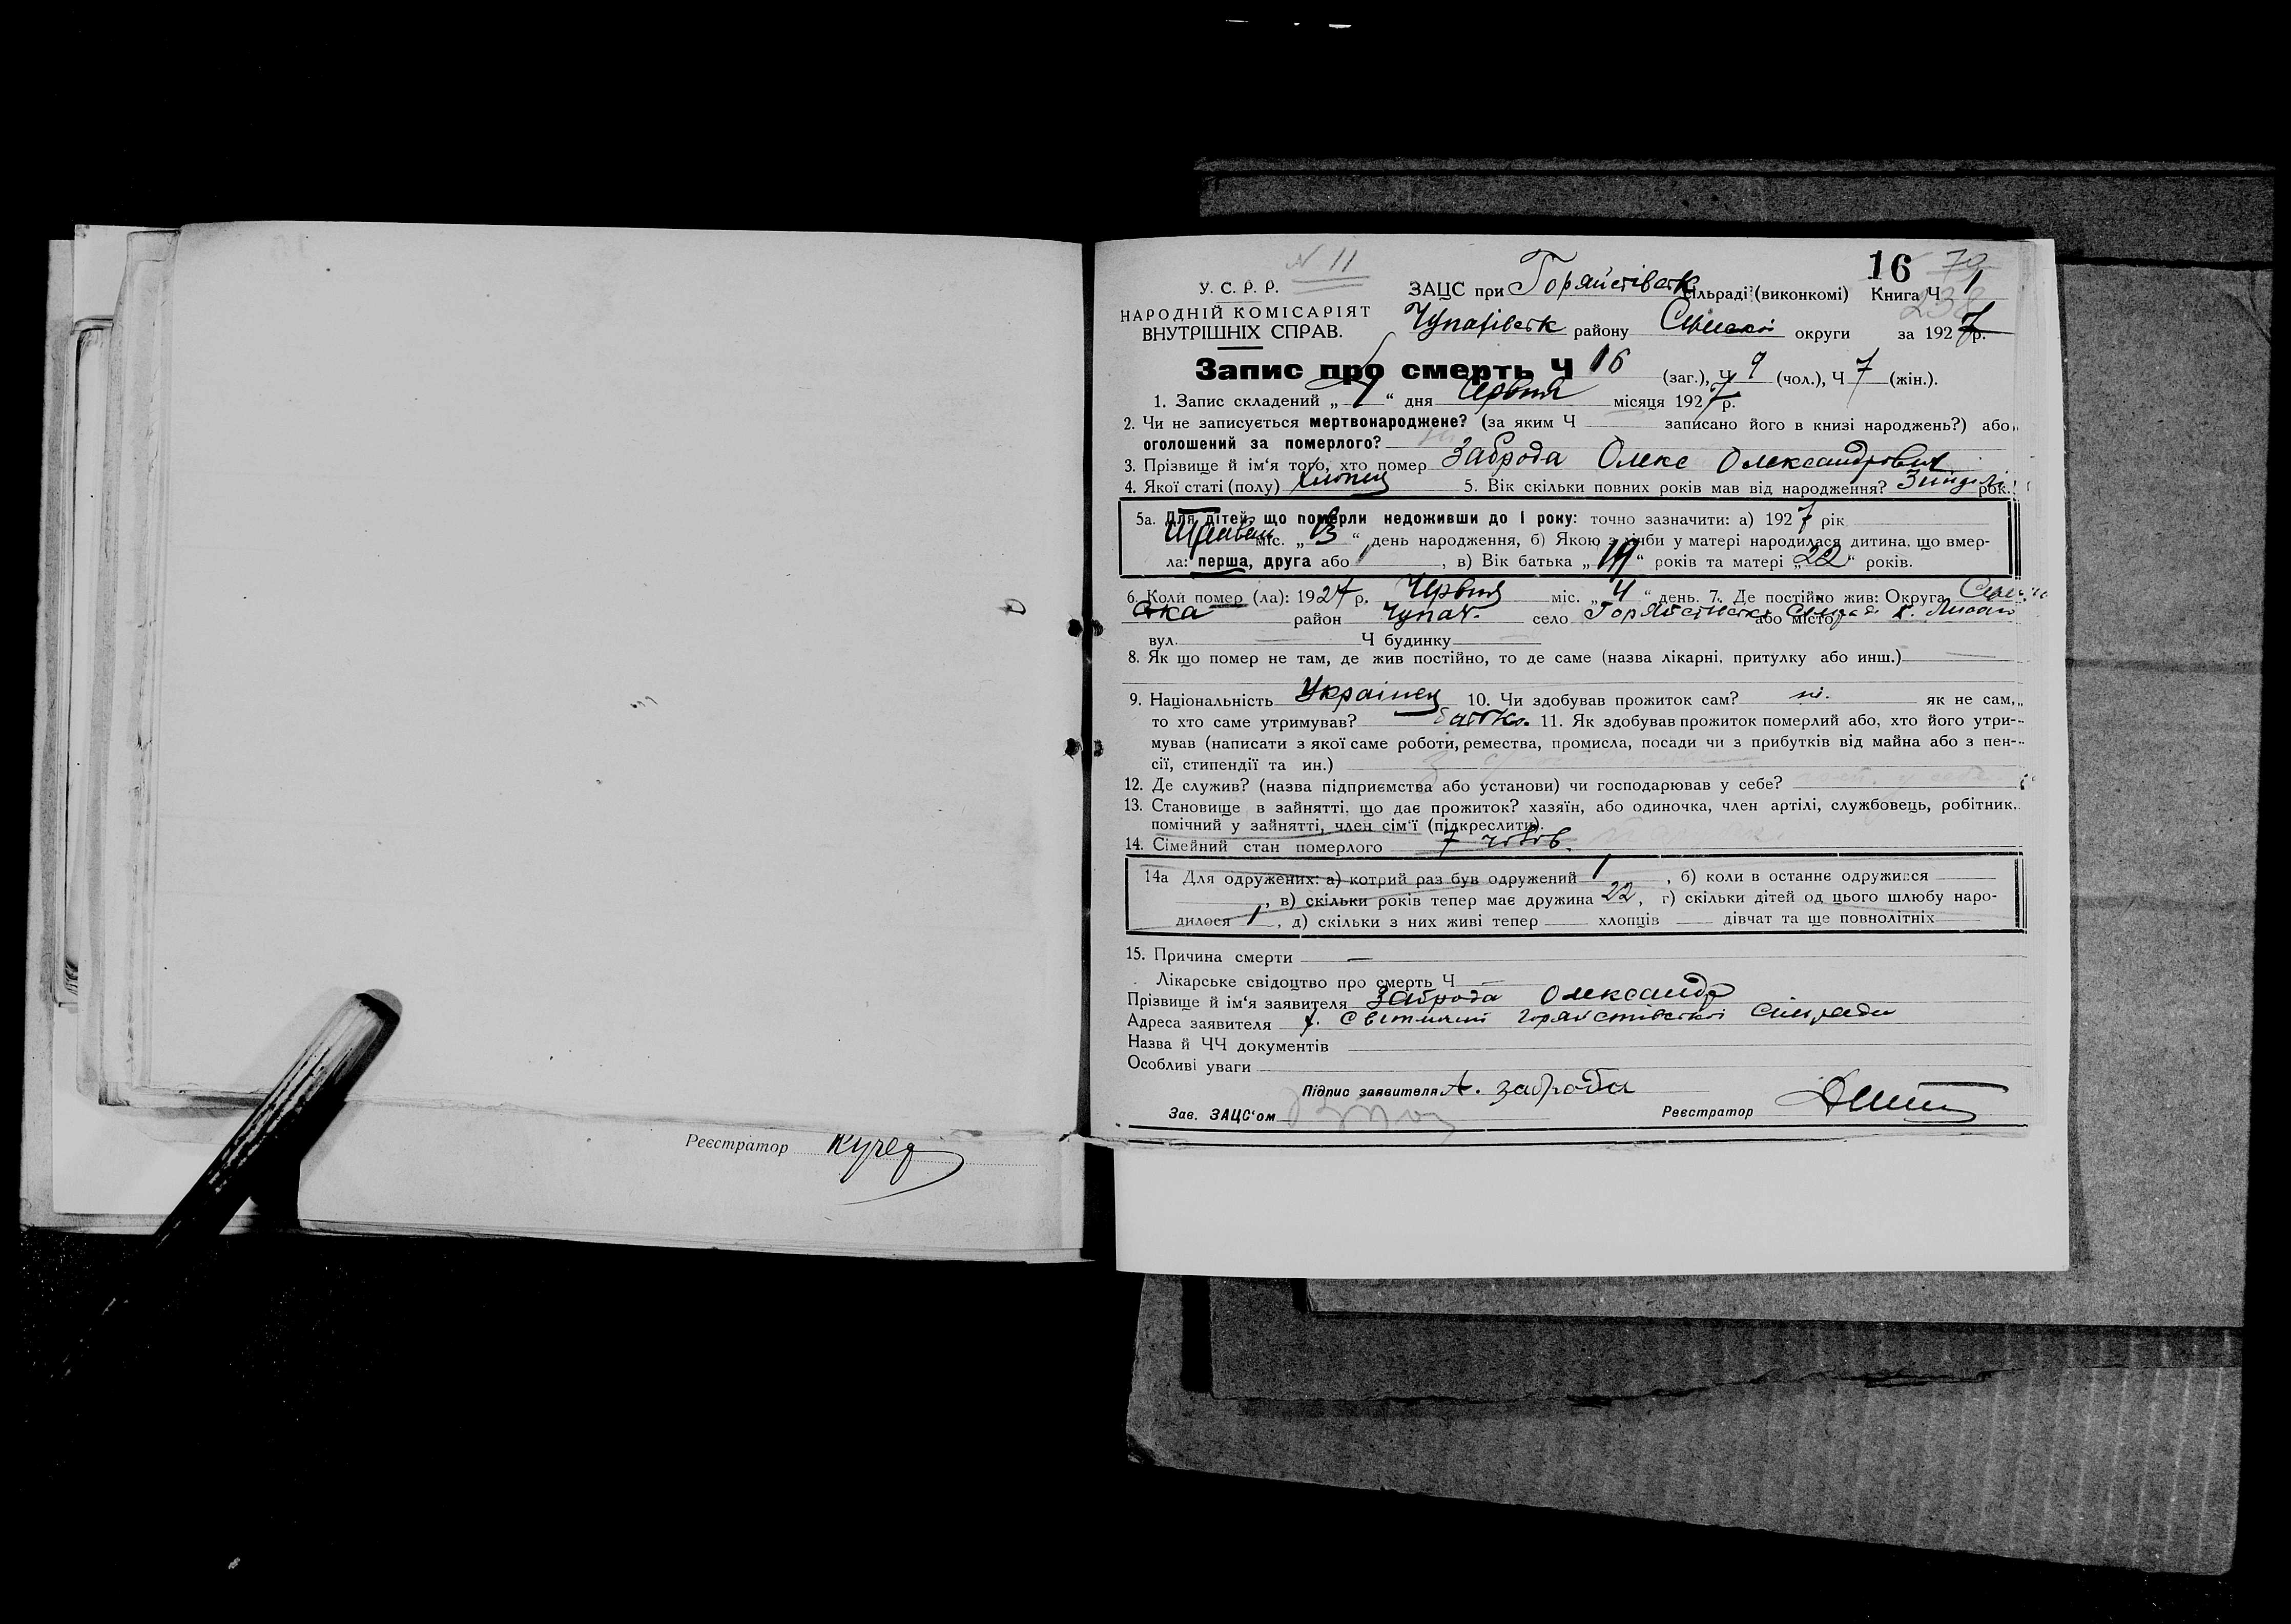 N 11
16 79
238
У. С. Р. Р.
НАРОДНІЙ КОМІСАРІЯТ
ВНУТРІШНІХ СПРАВ.
ЗАЦС при Горяйстівськ сільраді (виконкомі) Книга Ч 1
Чупахівськ району Сумської округи за 1927 р.
Запис про смерть Ч 16 (заг.), Ч 9 (чол.), Ч 7 (жін.).
1. Запис складений „ “ дня Червня місяця 1927 р.
2. Чи не записується мертвонароджене? (за яким Ч записано його в книзі народжень?) або
оголошений за померлого? ні
3. Прізвище й ім‘я того, хто помер Заброда Олекс Олександрович
4. Якої статі (полу) хлопець 5. Вік скільки повних років мав від народження? 3 неділі рок.
5а. Для дітей, що померли недоживши до 1 року: точно зазначити: а) 1927 рік
Травень міс. „13“ день народження, б) Якою з лічби у матері народилася дитина, що вмер-
ла: перша, друга або , в) Вік батька „19“ років та матері „22“ років.
6. Коли помер (ла): 1927 р. Червня міс. „4“ день. 7. Де постійно жив: Округа Сумсь
ька район Чупах. село Горяйстівська або місто Сільрада х.
вул. Ч будинку
8. Як що помер не там, де жив постійно, то де саме (назва лікарні, притулку або инш.)
9. Національність Українец 10. Чи здобував прожиток сам? ні. як не сам,
то хто саме утримував? батько. 11. Як здобував прожиток померлий або, хто його утри-
мував (написати з якої саме роботи, ремества, промисла, посади чи з прибутків від майна або з пен-
сії, стипендії та ин.)
12. Де служив? (назва підприємства або установи) чи господарював у себе?
13. Становище в зайнятті, що дає прожиток? хазяїн, або одиночка, член артілі, службовець, робітник.
помічний у зайнятті, член сім‘ї (підкреслити).
14. Сімейний стан померлого 7 чолов.
14а Для одружених: а) котрий раз був одружений 1 , б) коли в останнє одружився
, в) скільки років тепер має дружина 22, г) скільки дітей од цього шлюбу наро-
дилося 1 , д) скільки з них живі тепер хлопців дівчат та ще повнолітніх
15. Причина смерти —
Лікарське свідоцтво про смерть Ч —
Прізвище й ім‘я заявителя Заброда Олександр
Адреса заявителя х. Світличний Горяйстівської Сільради
Назва й ЧЧ документів
Особливі уваги
Підпис заявителя А. заброда
Зав. ЗАЦС‘ом Реєстратор
Реєстратор Кучер